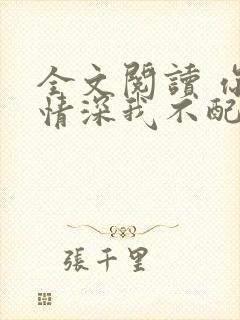 全文閱讀 你
情深我不配
張千里